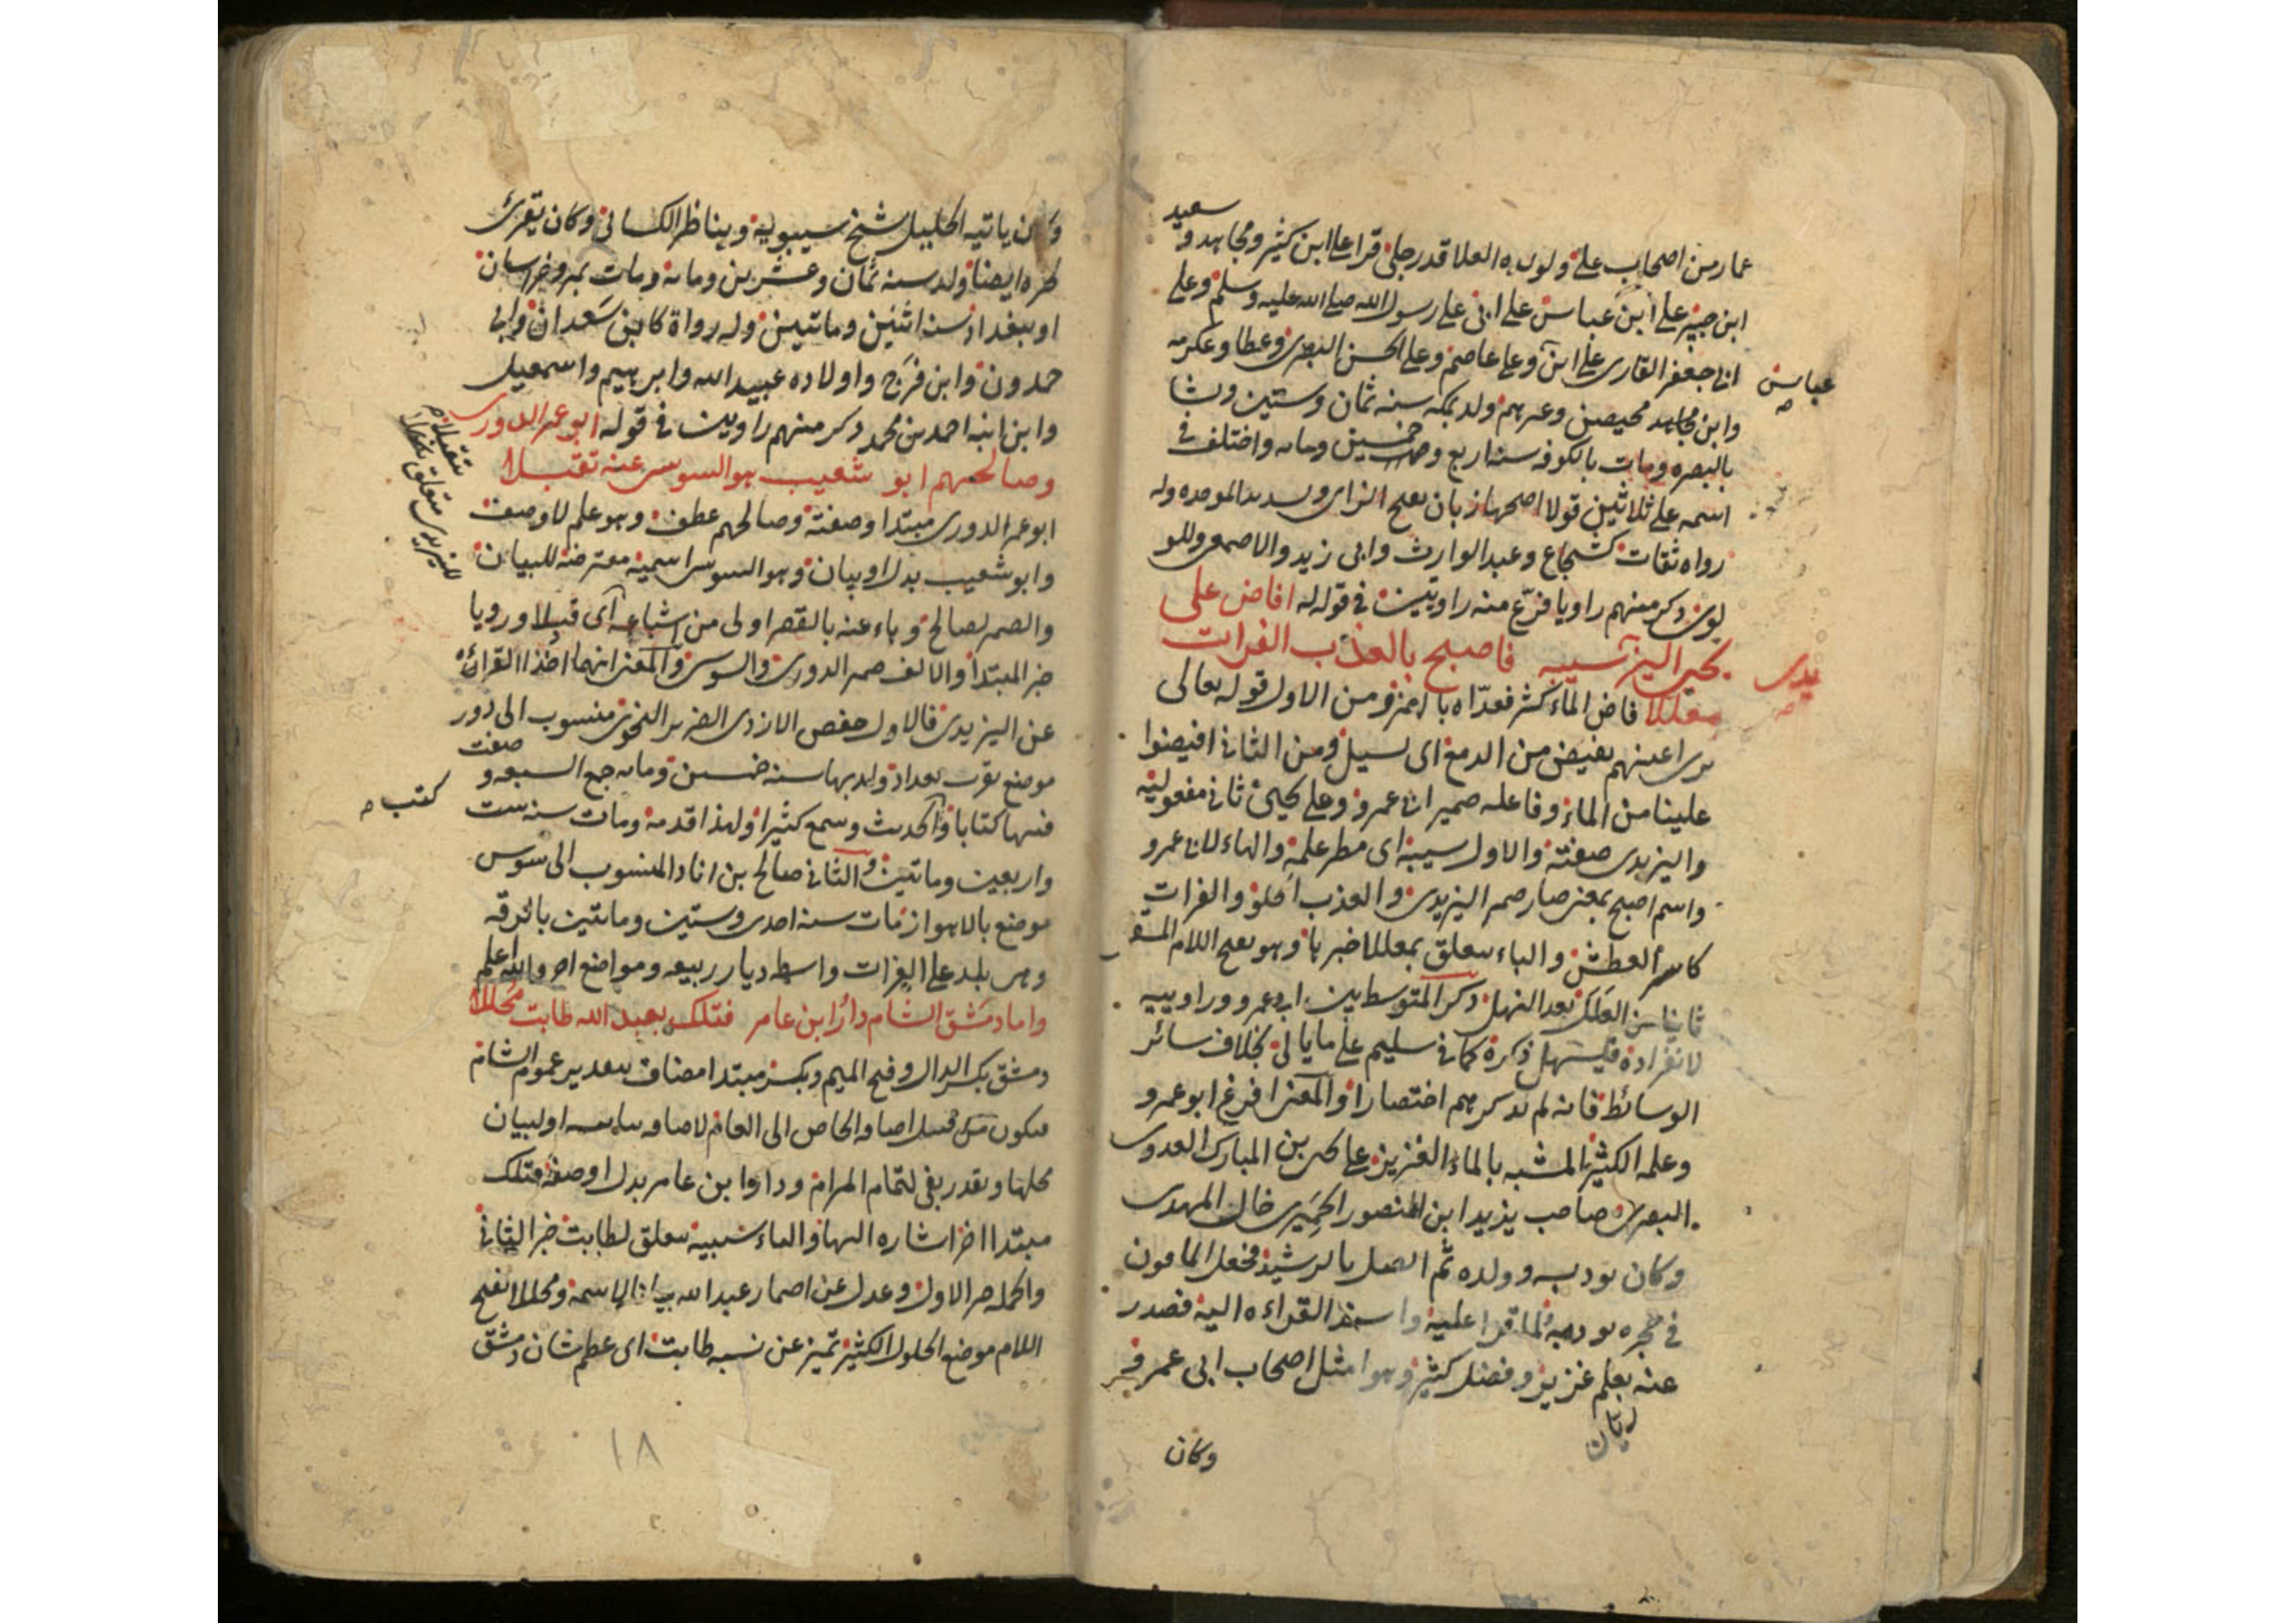 سعيد
عمار من اصحاب علي ولوالده العلا قدر جلي قرا على ابن كثير ومجاهد و
ابن جبير على ابن عباس على ابي على رسول الله صلى الله عليه وسلم وعلى
ابي جعفر القارى على ابن وعلى عاصم وعلى الحسن البصرى وعطا وعكرمه
عباس
وابن مجاهد محيصن وغيرهم ولد بمكه سنه ثمان وستين ونشا
بالبصره ومات بالكوفه سنه اربع وخمسين ومايه واختلف في
اسمه على ثلاثين قولا اصحها زبان بفتح الزاى وسديد الموحده وله
رواه ثقات كشجاع وعبد الوارث وابى زيد والاصمعى واللو
لوى ذكر منهم راويا فرّع منه راويين في قوله افاض على
يحيى اليزيدى سيبه فاصبح بالعذب الفرات
يدى
معللا فاض الماء كثر فعدّاه بالهمز ومن الاول قوله تعالى
ترى اعينهم تفيض من الدمع اى تسيل ومن الثانى افيضوا
علينا من الماء وفاعله ضمير ابى عمرو وعلى يحيى ثانى مفعوليه
واليزيدى صفته والاول سيبه اى مطر علمه والهاء لابى عمرو
واسم اصبح بمعنى صار ضمير اليزيدى والعذب الحلو والفرات
كاسر العطش والباء يتعلق بمعللا خبرها وهو بفتح اللام المسقى
ثانيا من العلل بعد النهل ذكر المتوسط بين ابى عمرو وراوييه
لانفراده فليسهل ذكره كما فى سليم على ما ياتى بخلاف سائر
الوسائط فانه لم يذكرهم اختصارا والمعنى افرغ ابو عمرو
وعلمه الكثير المشبه بالماء الغزيز على يحيى بن المبارك العدوى
البصرى صاحب يزيد ابن المنصور الحميرى خال المهدى
وكان يودب وولده ثم اتصل بالرشيد فجعل المامون
في حجره يودبه فلما قرا عليه واسند القراءه اليه فصدر
عنه بعلم غزيز وفضل كثير وهو امثل اصحاب ابى عمرو
زبان
وكان
وكان ياتيه الخليل شيخ سيبويه ويناظر الكسائى وكان يقرئ
اولد سنه ثمان وعشرين ومايه ومات بمرو خراسان
او ببغداد سنه اثنين ومائتين وله رواة كابن سعدان وابى
حمدون وابن فرج واولاده عبيد الله وابرهيم واسمعيل
وابن ابنه احمد بن محمد ذكر منهم راويين في قوله ابو عمر الدورى
وصالحهم ابو شعيب هو السوسى عنه تقبلا
تقبلا م
لليزيدى متعلق
ابو عمر الدورى مبتدا وصفته وصالحهم عطف وهو علم لا وصف
وابو شعيب بدل او بيان وهو السوسى اسميه معترضه للبيان
والضمير لصالح وهاء عنه بالقصر اولى من اشباعه اى قبلا ورويا
خبر المبتدا والالف ضمير الدورى والسوسى والمعنى انهما اخذا القرائه
عن اليزيدى فالاول حفص الازدى الضرير النحوى منسوب الى دور
موضع بقرب بغداد ولد بها سنه خمسين ومايه جمع السبعه وصنف
فيها كتابا والحديث وسمع كثيرا ولهذا قدمه ومات سنه ست
كتب م
واربعين ومائتين والثانى صالح بن زياد المنسوب الى سوس
موضع بالاهواز مات سنه احدى وستين ومائتين بالرقه
وهى بلد على الفرات واسط ديار ربيعه ومواضع اخر والله اعلم
واما دمشق الشام دار ابن عامر فتلك بعبد الله طابت محللا
دمشق بكسر الدال وفتح الميم وبكسر مبتدا مضاف بتقدير عموم الشام
فيكون من قبيل اضافه الخاص الى العام لاضافه او لبيان
محلها ويقدر بفى لتمام المرام ودار ابن عامر بدل او صفه فتلك
مبتدا اخر اشاره اليها والباء سببيه يتعلق لطابت خبر الثانى
والجمله خبر الاول وعدل عن اضمار عبد الله بيانا لاسمه ومحللا بفتح
اللام موضع الحلول الكثير تميز عن نسبه طابت اى عظم شان دمشق
١٨